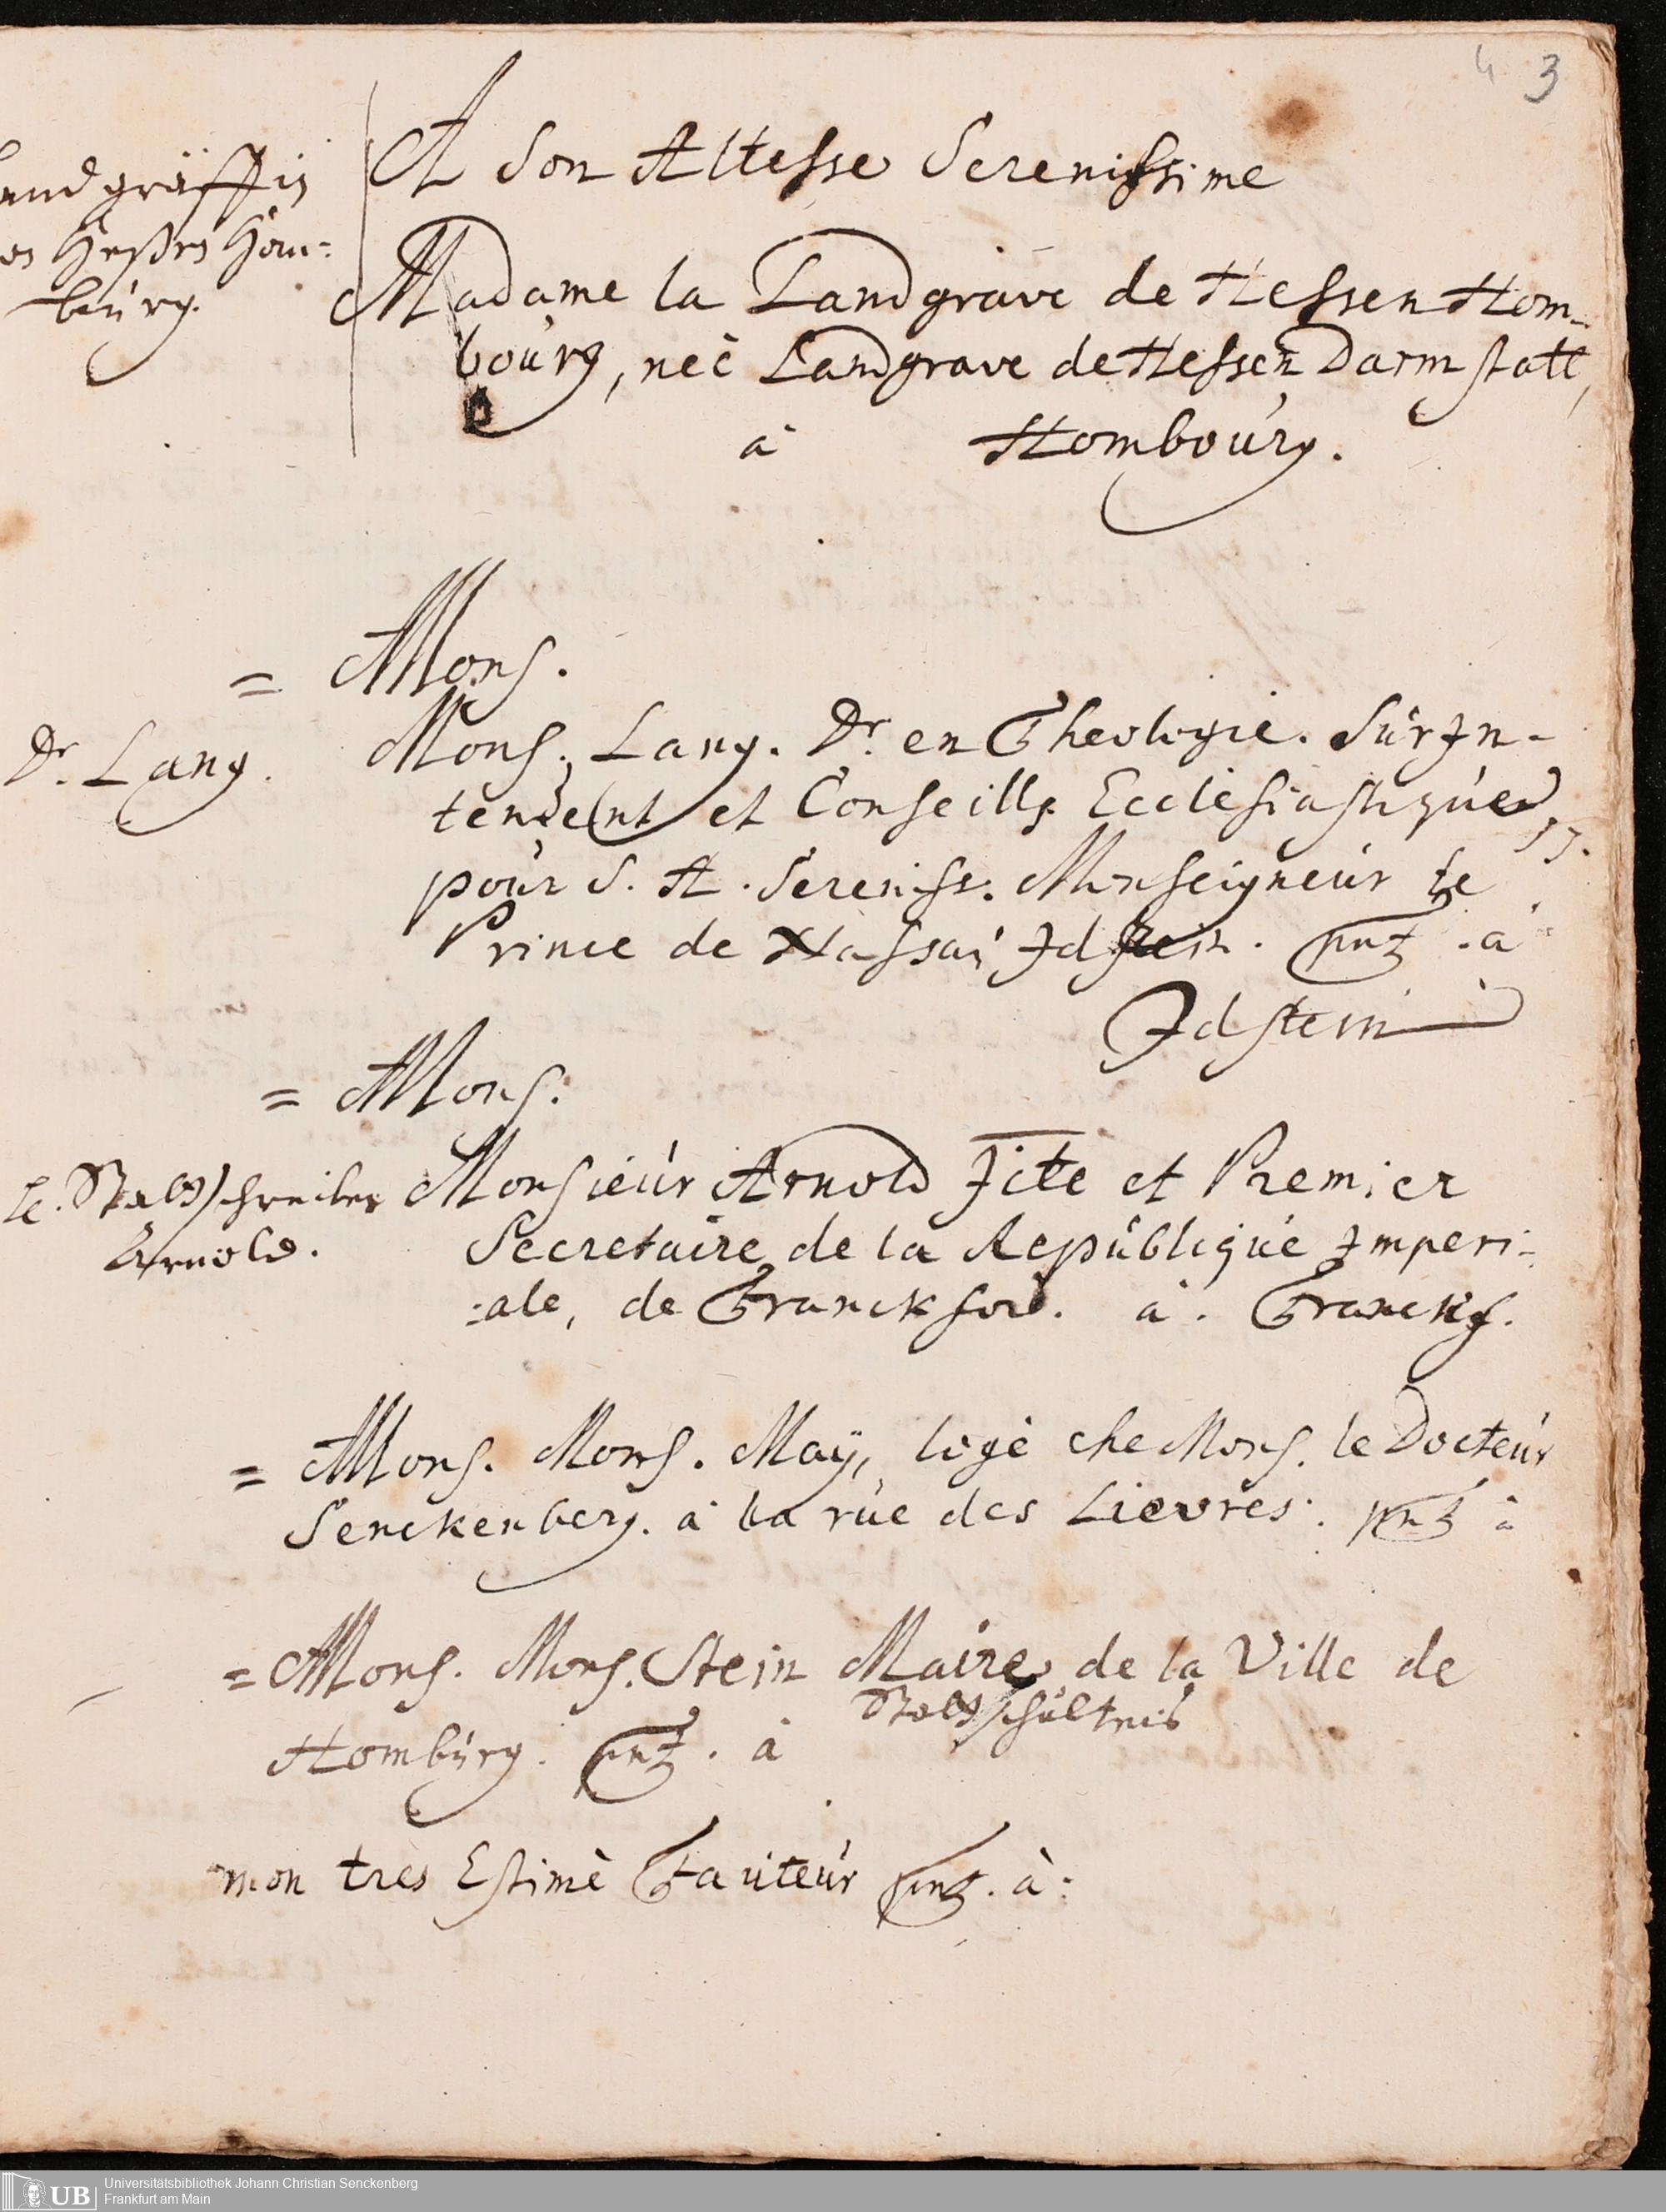 4 3
A Son Altesse Serenissime
Landgräffin
von Heßen Hom=
burg.
Madame la Landgrave de Hessen Hom-
bourg, neè Landgrave de Hessen Darmstatt,
à Hombourg.
= A Mons.
Dr. Lang.
Mons. Lang. Dr. en Theologie. Surin-
tendent et Conseill. Ecclesiastique
pour S. A. Sereniss. Monseigneur le
Prince de Nassau Idstein. pnt. à
Idstein
= A Mons:
H. Stattschreiber
Arnold.
Monsieur Arnold Jcte et Premier
Secretaire de la Republique Imperi-
:ale, de Franckford. à. Franckf.
= A Mons. Mons. Maÿ, logè che Mons. le Docteur
Senckenberg. à la rue des Lievres. pnt à
= A Mons. Mons. Stein Maire de la Ville de
Stattschultheis
Homburg. pnt. à
mon tres Estimè Fauteur pnt. à:
UB Universitätsbibliothek Johann Christian Senckenberg
Frankfurt am Main